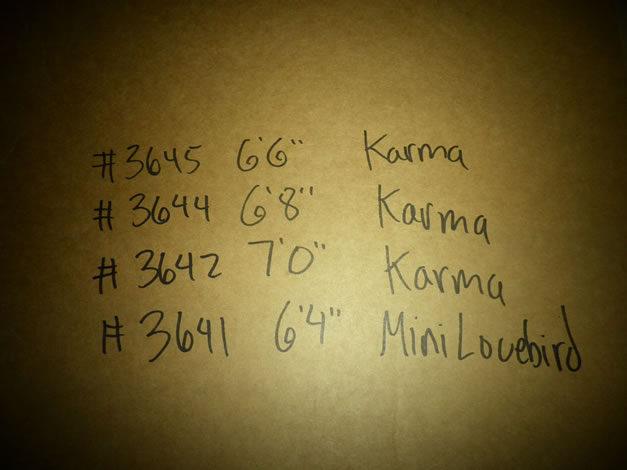 #3645 6'6" Karma
#3644 6'8" Karma
#3642 7'0" Karma
#3641 6'4" Mini Lovebird